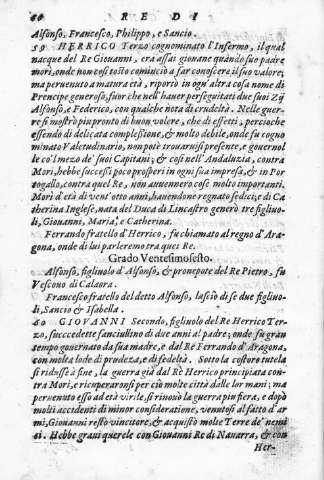 60 R E D I
Alfonso, Francesco, Philippo, e Sancio.
59 HERRICO Terzo cognominato l'Infermo, il qual
nacque del Re Giouanni, era assai giouane quando suo padre
morì, onde non così tosto cominciò a far conoscere il suo valore,
ma peruenuto a matura età, riportò in ogn'altra cosa nome di
Prencipe generoso, fuor che nell'hauer perseguitati duo suoi Zij
Alfonso, e Federico, con qualche nota di crudeltà. Nelle guer-
re si mostrò piu pronto di buon volere, che di effetti, percioche
essendo di delicata complessione, & molto debile, onde fu cogno
minato Valetudinario, non potè trouaruisi presente, e gouernol
le co'l mezo de' suoi Capitani, & così nell'Andaluzia, contra
Mori, hebbe successi poco prosperi in ogni sua impresa, & in Por
togallo, contra quel Re, non auuennero cose molto importanti.
Morì d'età di vent'otto anni, hauendone regnato sedici, e di Ca
therina Inglese, nata del Duca di Lincastro generò tre figliuo-
li, Giouanni, Maria, e Catherina.
Ferrando fratello d'Herrico, fu chiamato al regno d'Ara-
gona, onde di lui parleremo tra quei Re.
Grado Ventesimosesto.
Alfonso, figliuolo d'Alfonso, & pronepote del Re Pietro, fu
Vescouo di Calaora.
Francesco fratello del detto Alfonso, lasciò di se due figliuo-
li, Sancio & Isabella.
60 GIOVANNI Secondo, figliuolo del Re Herrico Ter-
zo, succcedette fanciullino di due anni al padre; onde fu gran
tempo gouernato da sua madre, e dal Re Ferrando d'Aragona,
con molta lode di prudẽza, e di fedeltà. Sotto la costoro tutela
si ridusse à fine, la guerra già dal Re Herrico principiata con-
tra Mori, e ricuperaronsi per ciò molte città dalle lor mani; ma
peruenuto esso ad età virile, si rinouò la guerra piu fiera, e dopò
molti accidenti di minor consideratione, venutosi al fatto d'ar
mi, Giouanni restò vincitore, & acquistò molte Terre de' nemi
ci. Hebbe graui querele con Giouanni Re di Nauarra, & con
Her-